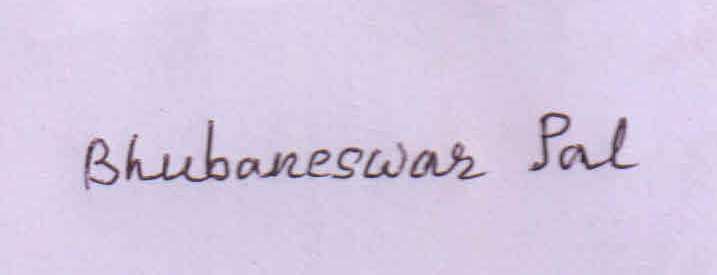 Bhubaneswar Pal